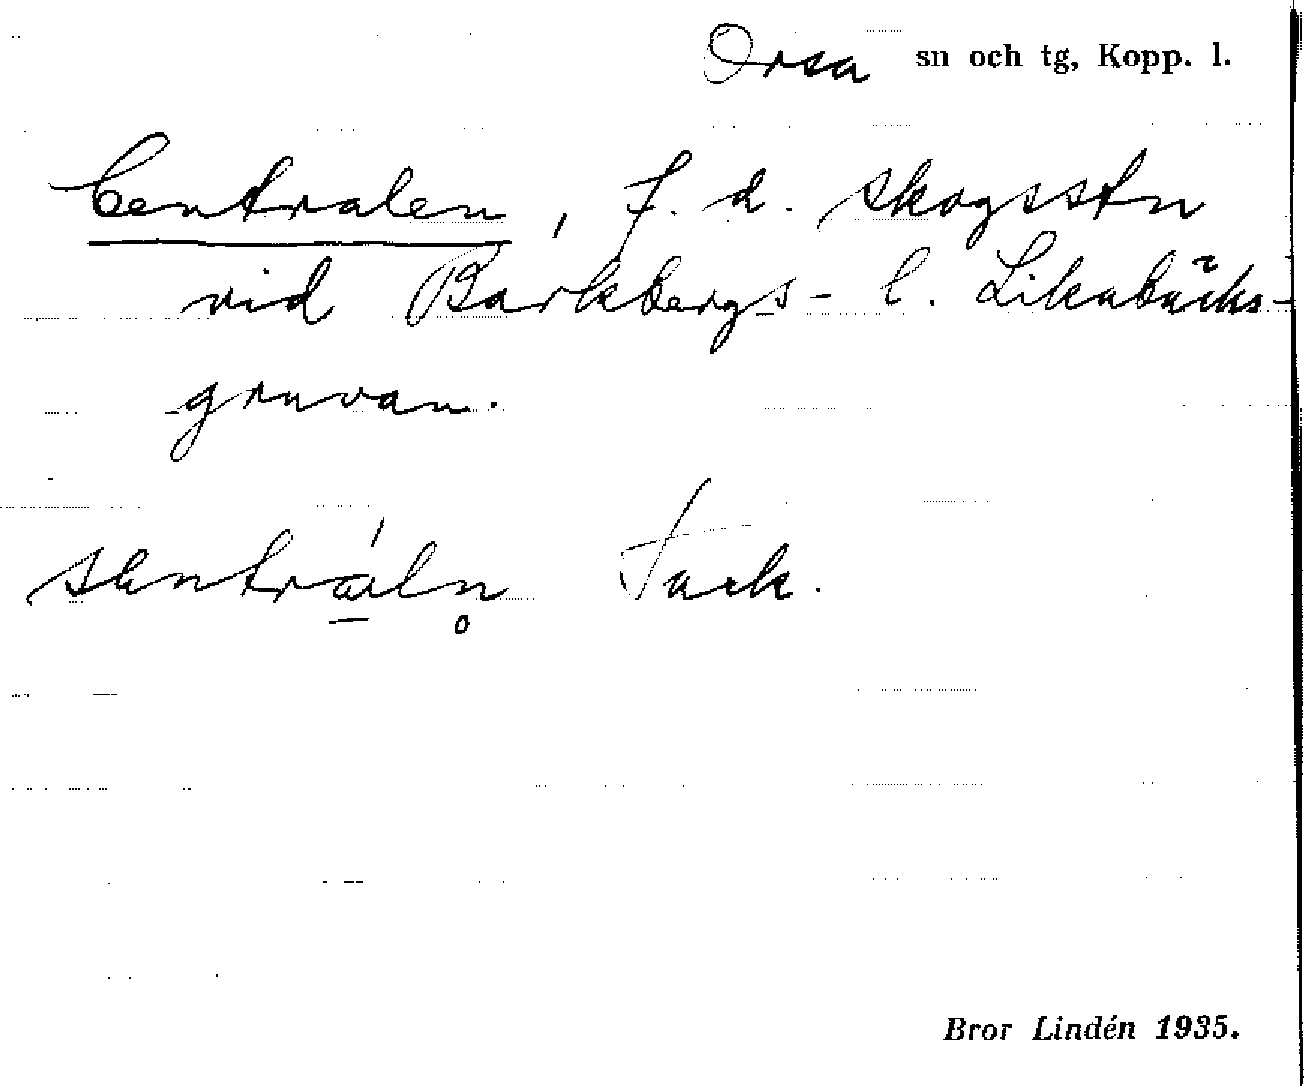 Orsa sn och tg, Kopp. l.
Centralen, f. d. skogsstn
vid Barkbergs- l. Likabäcks-
gruvan.
sentráln̥ Jack.
Bror Lindén 1935.